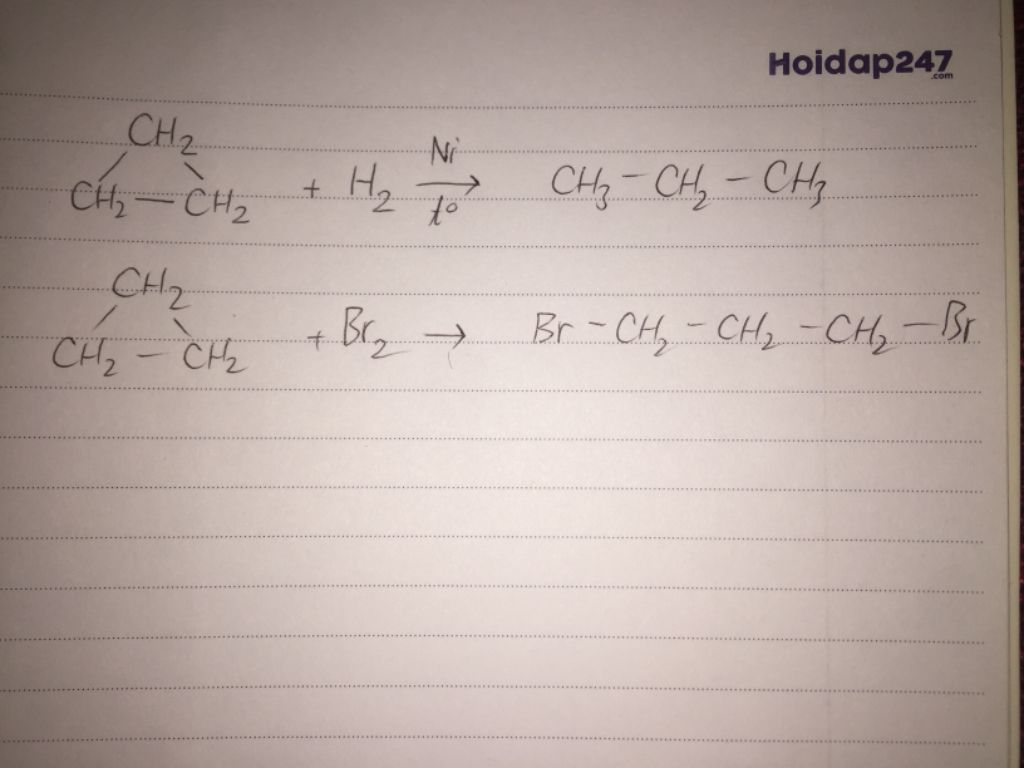 Hoidap247
.com
CH₂
Ni
CH₂ — CH₂ + H₂ → CH₃ – CH₂ – CH₃
t°
CH₂
CH₂ – CH₂ + Br₂ → Br – CH₂ – CH₂ – CH₂ – Br